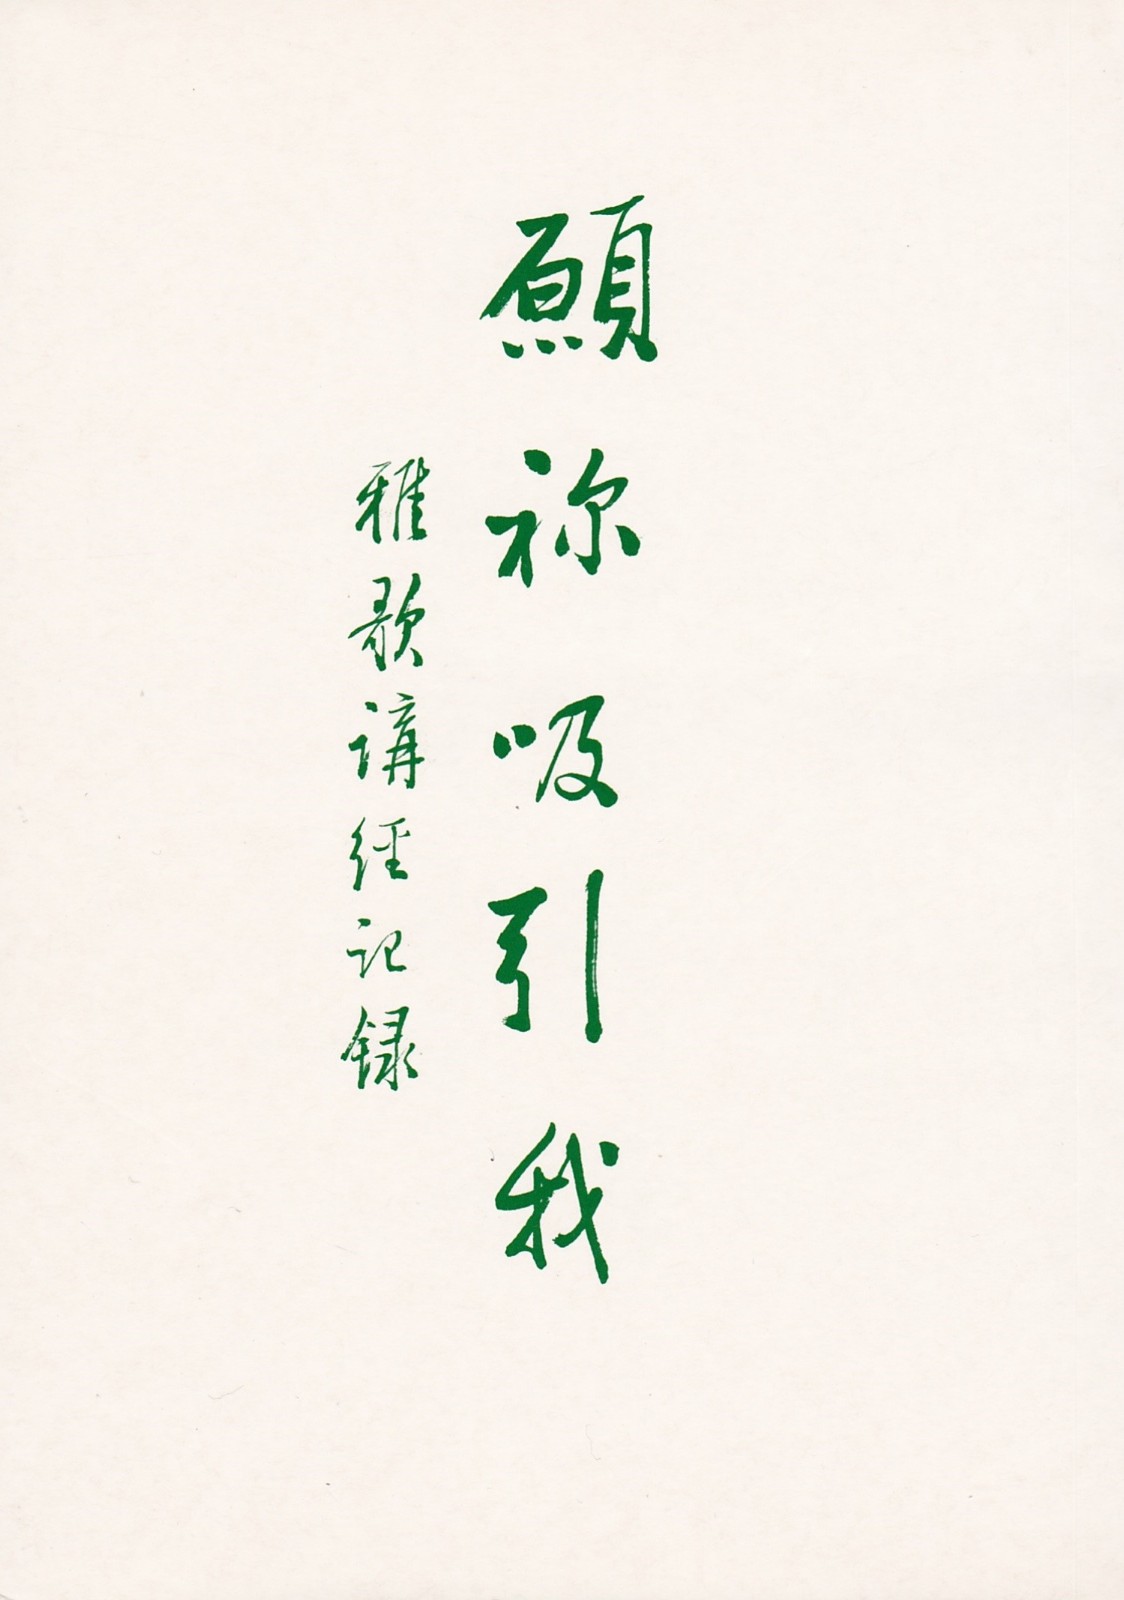 願祢吸引我
雅歌講經记録